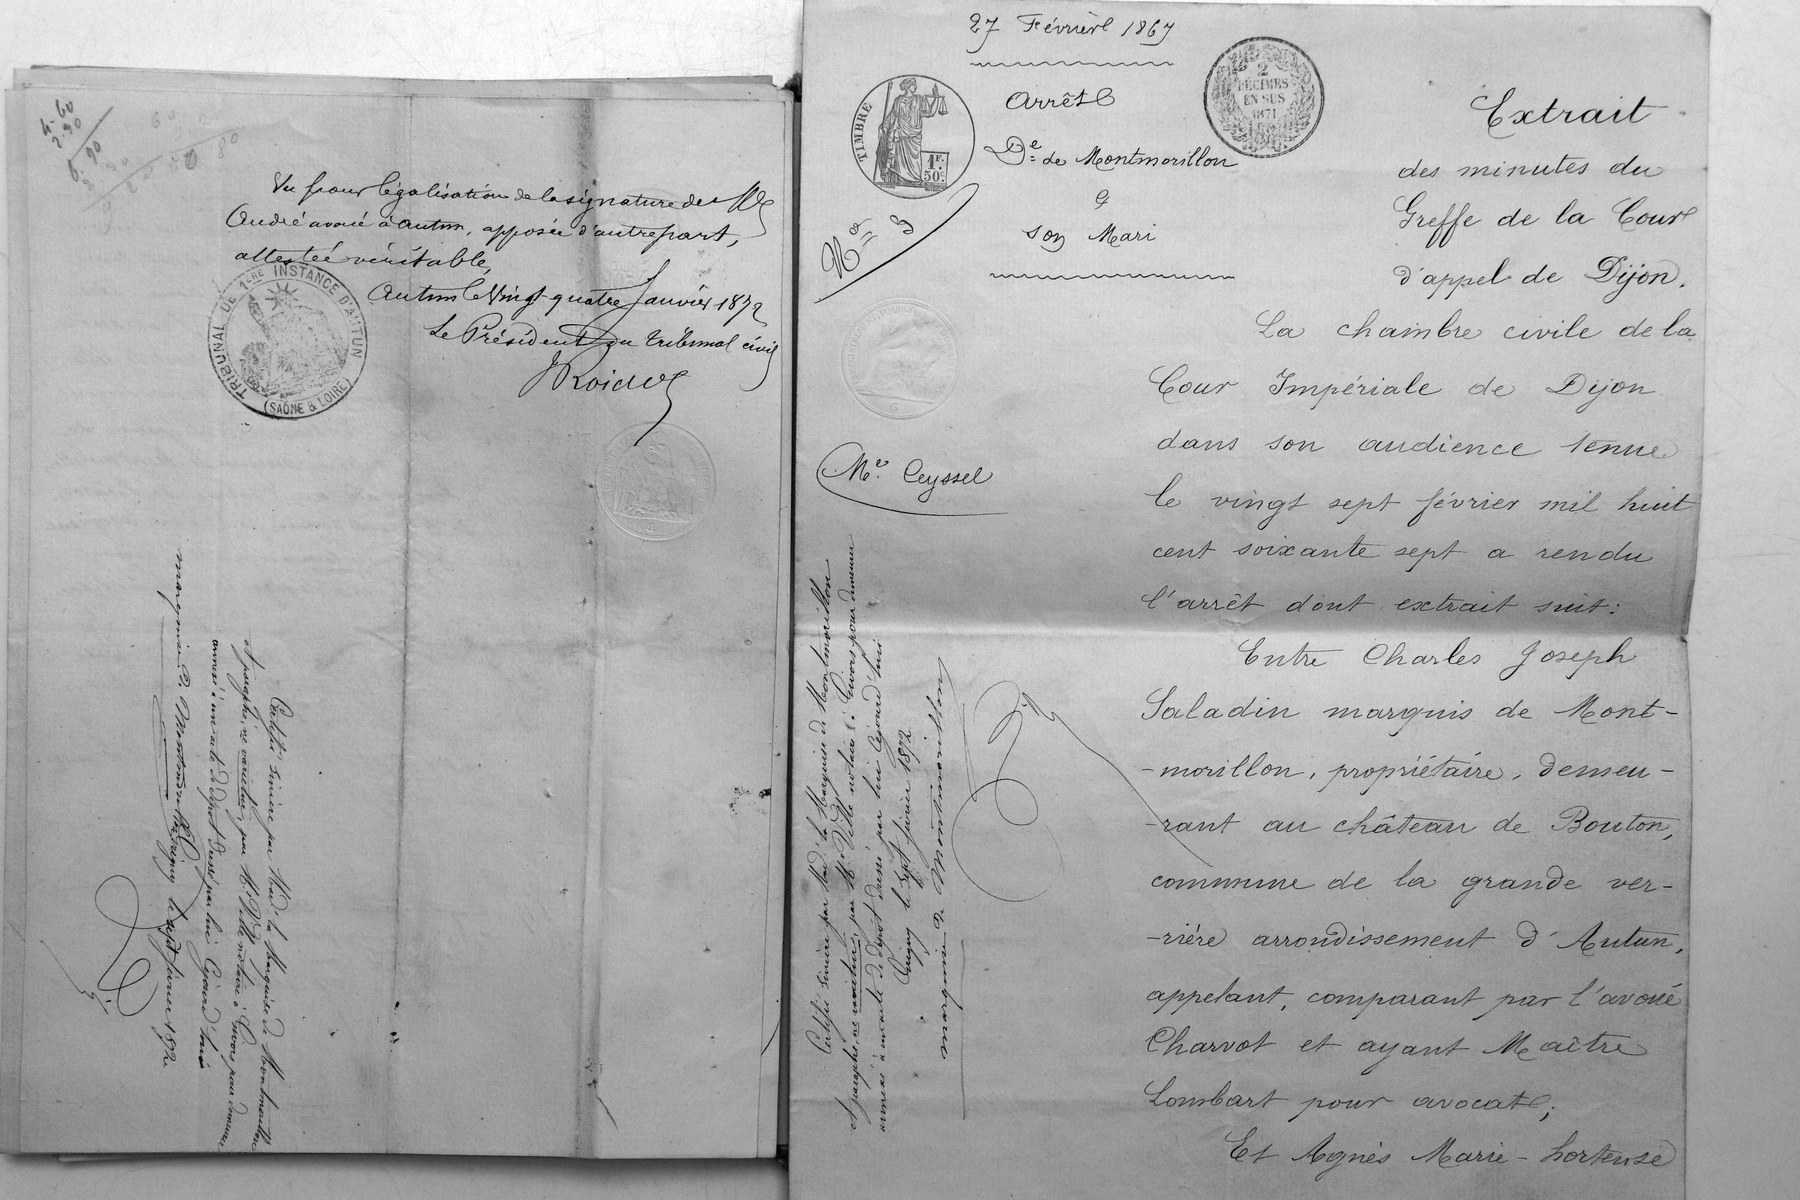 4-60
2.30
6.90
Vu pour légalisation de la signature de Me
André avoué à Autun, apposée d'autre part,
attestée véritable,
Autun le Vingt-quatre Janvier 1872
Le Président du Tribunal civil
TRIBUNAL DE 1ÈRE INSTANCE D'AUTUN
(SAÔNE & LOIRE)
Certifié sincère par Made la Marquise de Montmorillon
et paraphé, ne varietur, par Me Ville notaire à Givors, pour demeurer
annexé à un acte de dépôt dressé par lui Cejourd'hui
le sept février 1872
27 Février 1867
Arrêt
De de Montmorillon
C
son Mari
TIMBRE
1F.
50c.
2
DÉCIMES
EN SUS
1871
3
Me Ceyssel
Certifié sincère par Made la Marquise de Montmorillon
et paraphé, ne varietur, par Me Ville notaire à Givors pour demeurer
annexé à un acte de dépôt dressé par lui Cejourd'hui
le sept février 1872
marquise de Montmorillon
Extrait
des minutes du
Greffe de la Cour
d'appel de Dijon.
La chambre civile de la
Cour Impériale de Dijon
dans son audience tenue
le vingt sept février mil huit
cent soixante sept a rendu
l'arrêt dont extrait suit:
Entre Charles Joseph
Saladin marquis de Mont-
-morillon, propriétaire, demeu-
-rant au château de Bouton,
commune de la grande ver-
-rière arrondissement d'Autun,
appelant, comparant par l'avoué
Charvot et ayant Maître
Lombart pour avocat;
Et Agnès Marie-hortense